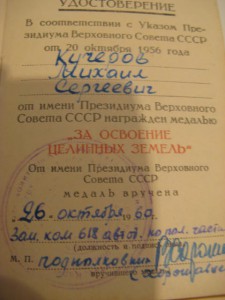 УДОСТОВЕРЕНИЕ
В соответствии с Указом Пре-
зидиума Верховного Совета СССР
от 20 октября 1956 года
Кучеров
Михаил
Сергеевич
от имени Президиума Верховного
Совета СССР награжден медалью
„ЗА ОСВОЕНИЕ
ЦЕЛИННЫХ ЗЕМЕЛЬ“
От имени Президиума Верховного
Совета СССР
медаль вручена
„26 октября 60.
Зам. ком 618 авт. части
(должность и
М. П. подполковник
вручившего